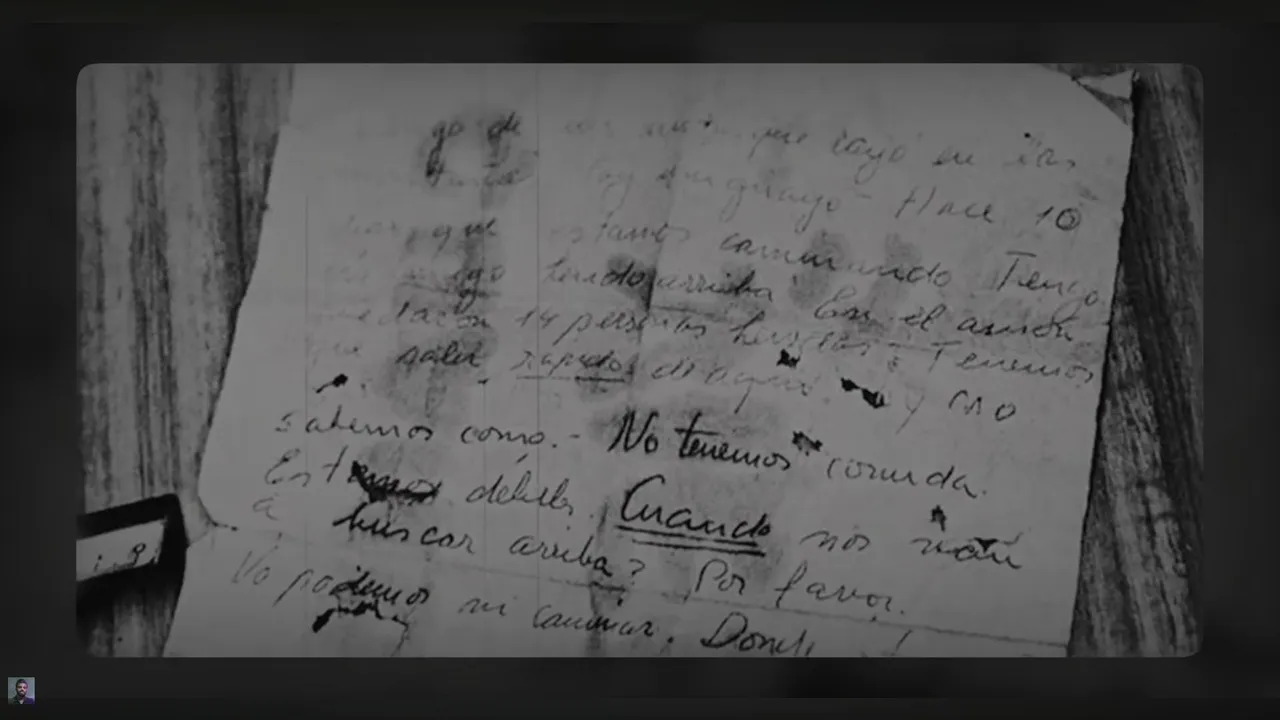 go de un avión que cayó en las
Soy uruguayo - Hace 10
que estamos caminando Tengo
amigo herido arriba En el avión
quedaron 14 personas heridas - Tenemos
que salir rapido de aqui y no
sabemos como. - No tenemos comida.
Estamos débiles. Cuando nos van
a buscar arriba? Por favor.
No podemos ni caminar. Donde